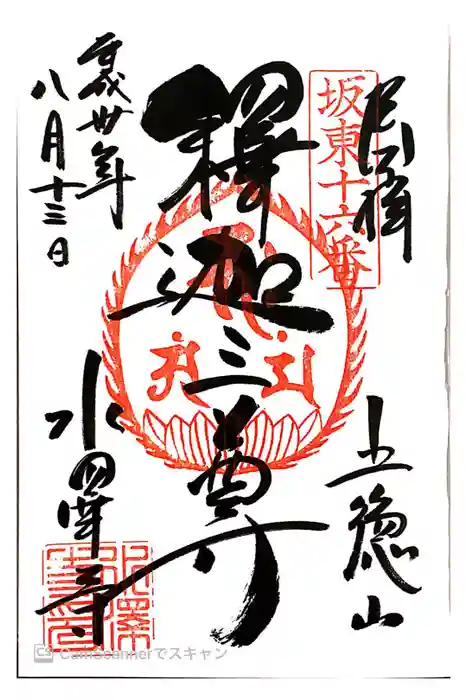 坂東十六番
五徳山
釋迦三尊
平成卅年
八月十三日
水澤寺
CS CamScannerでスキャン